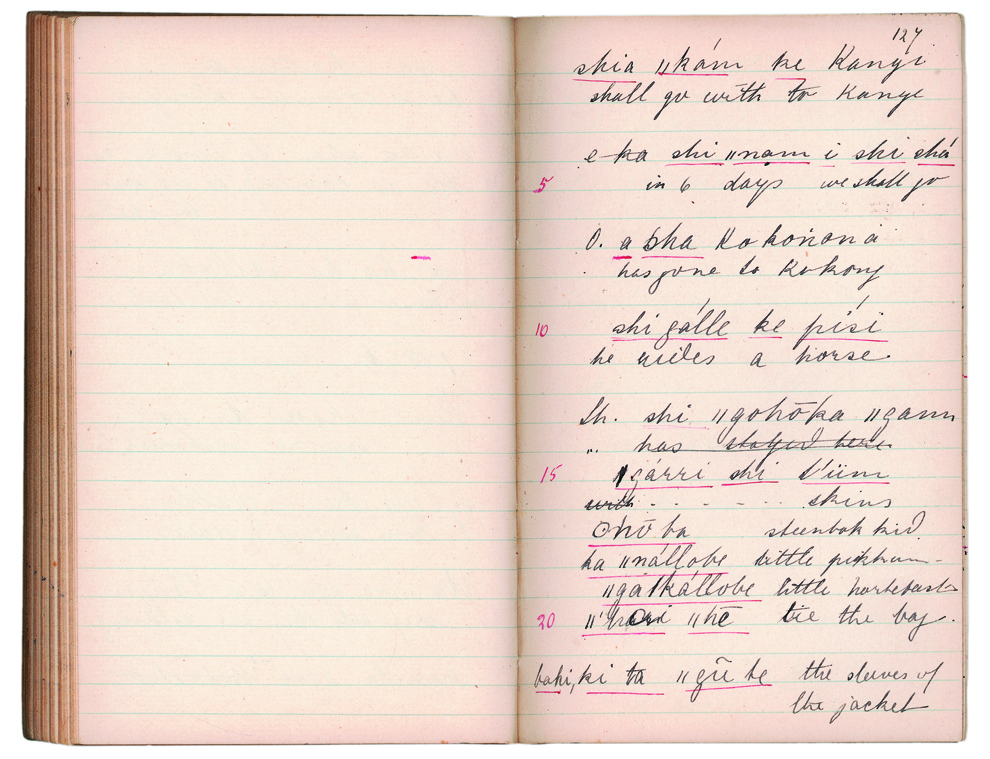 127
shia ǁkám ke Kanyi
shall go with to Kanye
e ka shi ǁnam i shi shá
5 in 6 days we shall go
O. a sha Kokonona
has gone to Kokong
10 shi gálle ke písi
he rides a horse
Sh. shi ǁgohōka ǁgann
„ has stayed here
15 ǁgárri shi
with - - - - - skins
ohō ba steenbok kid
ka ǁnállobe little
little hartebeest
20 ǁhē tie the bag.
bahi, ki ta ǁgū be the sleeves of
the jacket